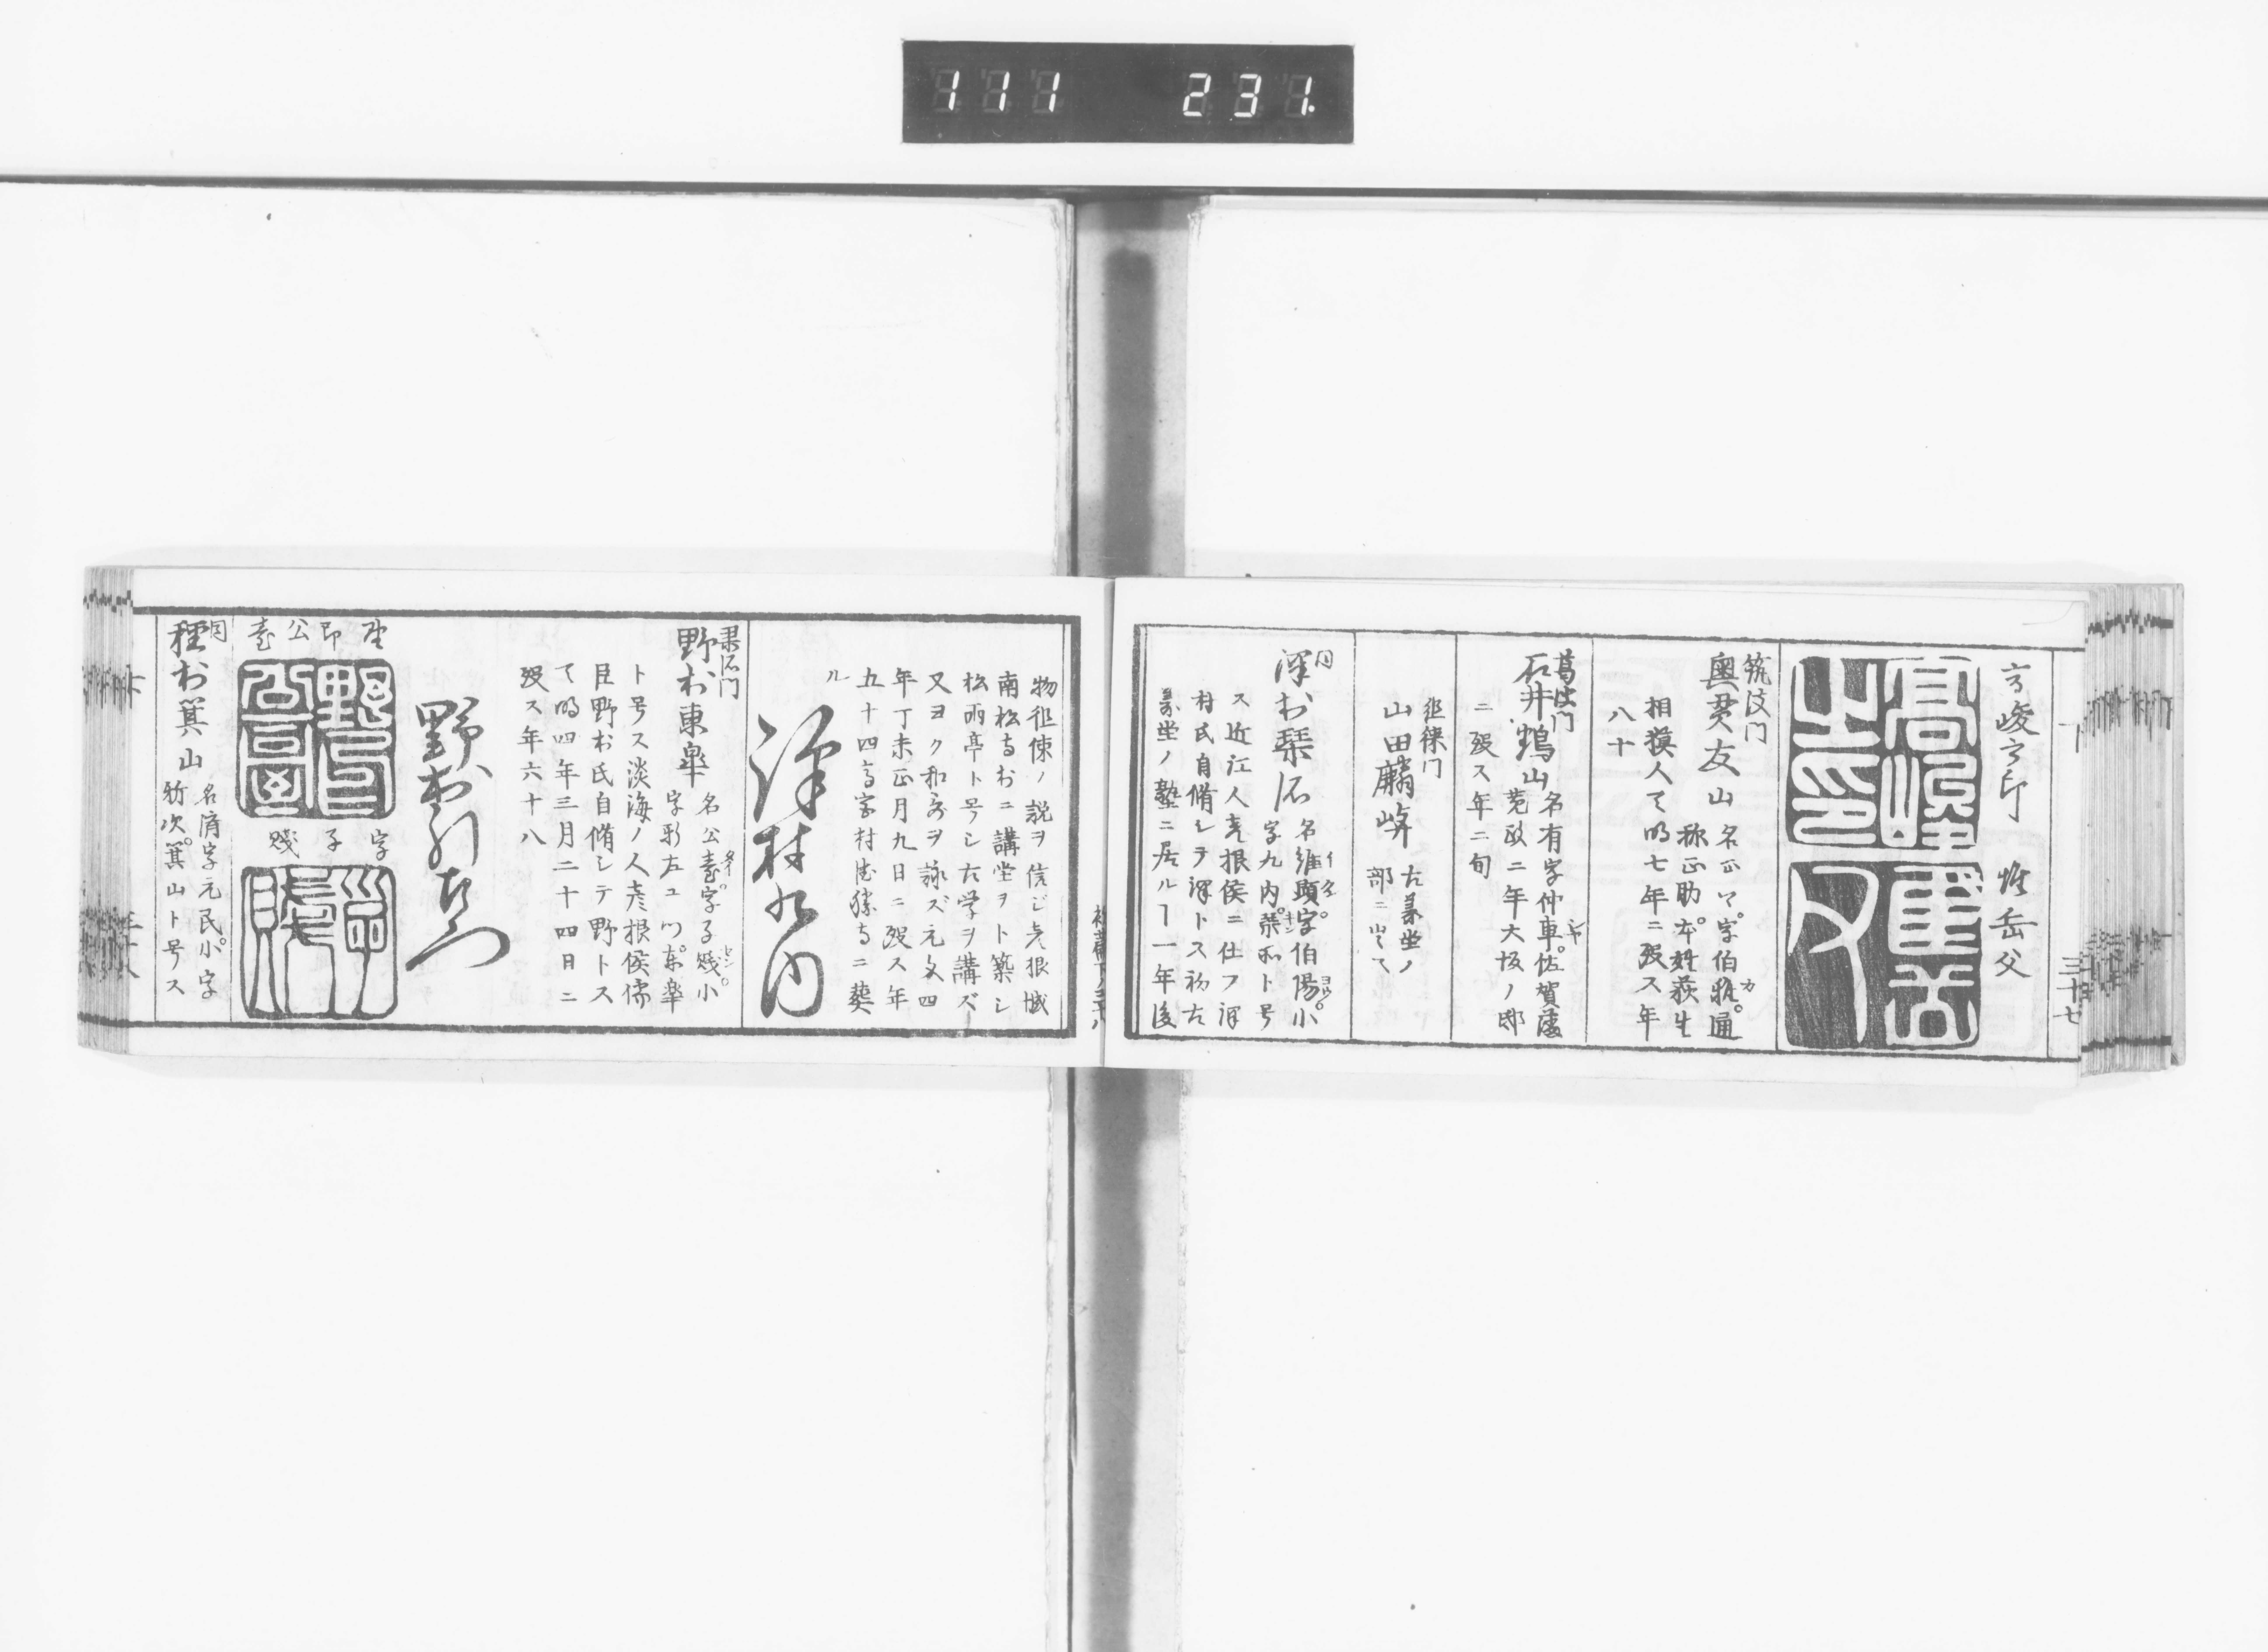 111 231
高峻之印 惟岳父
筑波門
奥君友山 名正 字伯雅 通
称正助 本姓荻生
相摸人 明七年ニ殁ス年
八十
石井鶴山 名有字仲車 佐賀藩
寛政二年大坂ノ邸
ニ殁ス年二旬
徂徠門
山田麟嶼 古義堂ノ
部ニ出ス
同
澤村琴所 名維顕 字伯陽 小
字九内 琴所ト号
ス近江人彦根侯ニ仕フ澤
村氏自脩シテ澤トス初古
義堂ノ塾ニ居ルヿ一年後
三十七
物徂徠ノ説ヲ信ジ彦根城
南松寺村ニ講堂ヲト築シ
松雨亭ト号シ古学ヲ講ズ
又ヨク和哥ヲ詠ズ元文四
年丁未正月九日ニ殁ス年
五十四高宮村徳勝寺ニ葬
ル
澤村九内
琴所門
野村東皐 名公臺 字子賤 小
字新左ヱ門 東皐
ト号ス淡海ノ人彦根侯儒
臣野村氏自脩シテ野トス
天明四年三月二十四日ニ
殁ス年六十八
野村新左
野印公臺
字子賤
同
種村箕山 名濟字元民 小字
竹次 箕山ト号ス